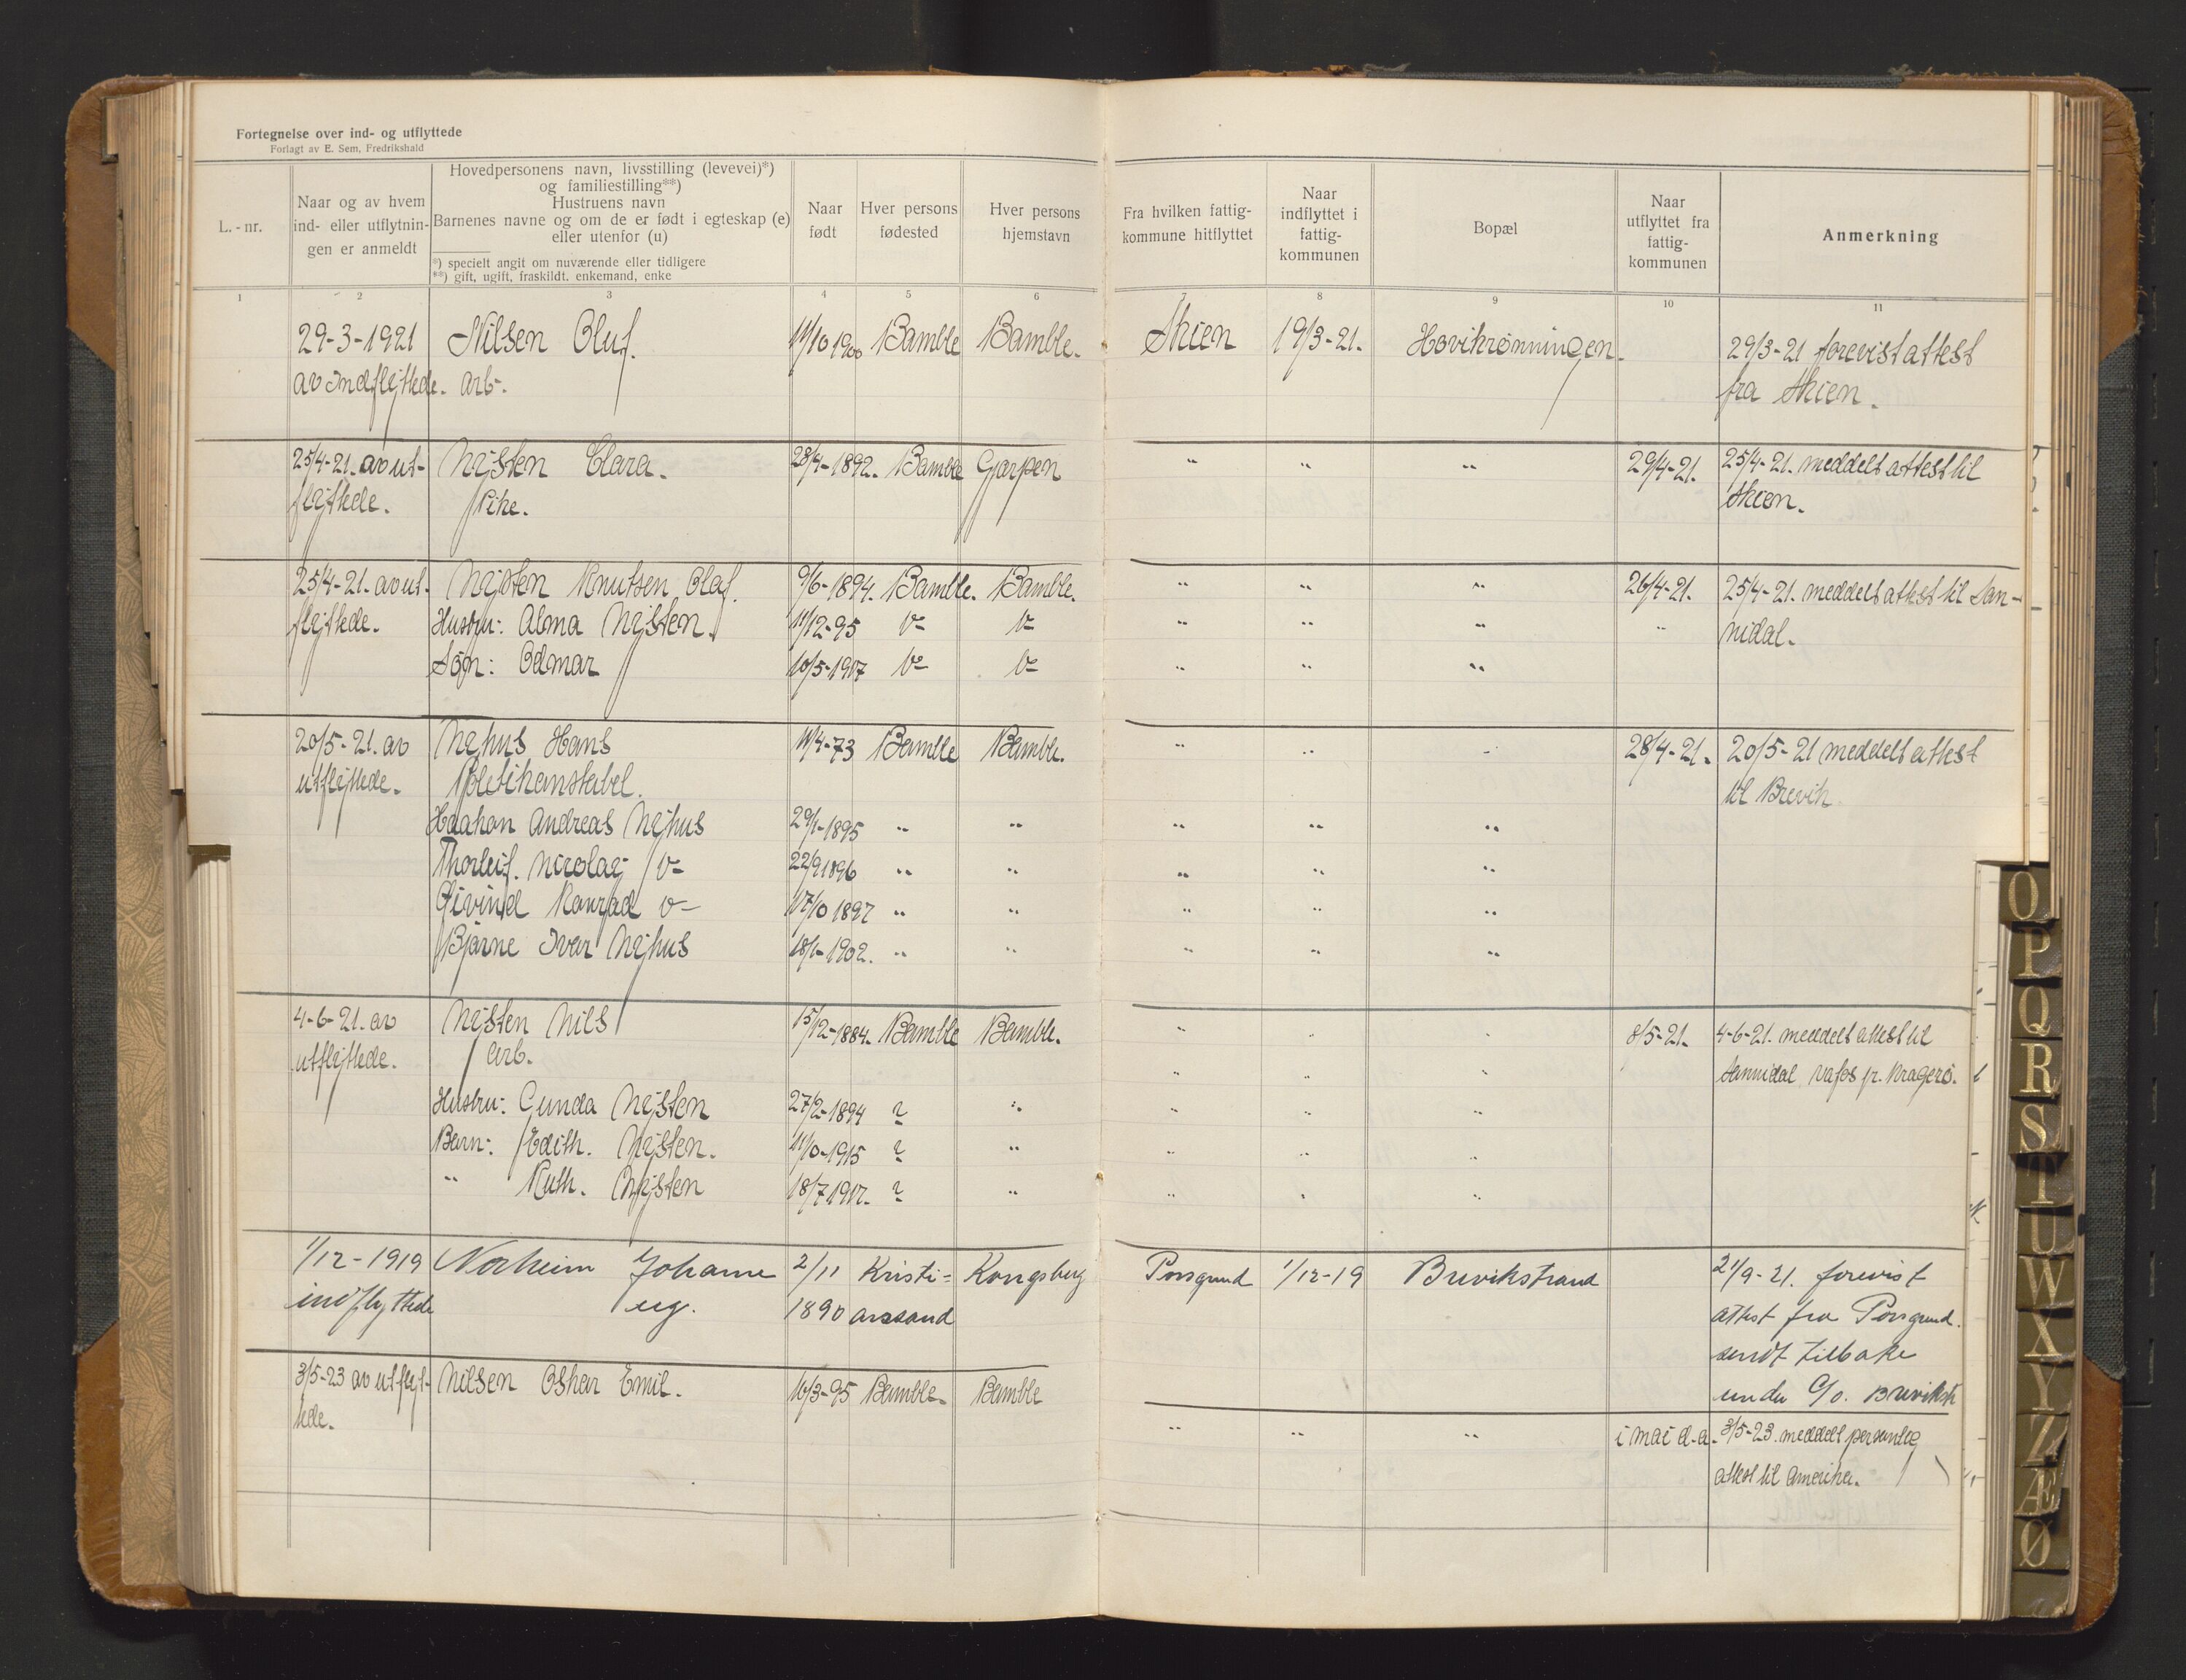 Fortegnelse over ind- og utflyttede
Forlagt av E. Sem, Fredrikshald
L.-nr.
Naar og av hvem ind- eller utflytningen er anmeldt
Hovedpersonens navn, livsstilling (levevei)*) og familiestilling**)
Hustruens navn
Barnenes navne og om de er født i egteskap (e) eller utenfor (u)
*) specielt angit om nuværende eller tidligere
**) gift, ugift, fraskildt. enkemand, enke
Naar født
Hver persons fødested
Hver persons hjemstavn
Fra hvilken fattigkommune hitflyttet
Naar indflyttet i fattigkommunen
Bopæl
Naar utflyttet fra fattigkommunen
Anmerkning
1 2 3 4 5 6 7 8 9 10 11
29-3-1921 Nilsen Oluf. 11/10 1900 Bamble Bamble. Skien 19/3-21. Hovikrønningen. 29/3-21 forevist attest
av indflyttede. arb. fra Skien.
25/4-21. av ut- Nysten Clara. 28/4-1892. Bamble Gjerpen " " " 29/4-21. 25/4-21. meddelt attest til
flyttede. Pike. Skien.
25/4-21. av ut- Nysten Knutsen Olaf. 9/6-1894. Bamble. Bamble. " " " 26/4-21. 25/4-21. meddelt attest til San-
flyttede. Hustru: Alma Nysten. 11/12-95 " " " " nidal.
Søn: Odmar 10/5-1917 " " "
20/5-21. av Nyhus Hans 11/4-73 Bamble Bamble. " " " 28/4-21. 20/5-21 meddelt attest
utflyttede. Politikonstabel. til Brevik
Haakon Andreas Nyhus 29/1-1895 " " " " "
Thorleif. Nicolay 22/9 1896 " " " " "
Eivind Konrad 17/10 1897 " " " " "
Bjarne Ivar Nyhus 18/1-1902. " " " " "
4-6-21. av Nysten Nils 15/12-1884. Bamble Bamble. " " " 8/5-21. 4-6-21. meddelt attest til
utflyttede. Arb. " " " Sannidal Vafos pr. Kragerø.
Hustru: Gunda Nysten 27/2-1894 ? " " " "
Barn: Edith. Nysten. 11/10-1915 ? " " " "
" Ruth. Nysten 18/7 1917. ? " " " "
1/12-1919 Norheim Johanne 2/11 Kristi= Kongsberg Porsgrund 1/12-19 Brevikstrand 21/9-21. forevist
indflyttede ug. 1890 anssand attest fra Porsgrund.
sendt tilbake
under c/o. Brevikstr
3/5-23 av utflyt- Nilsen Oskar Emil. 16/3-95 Bamble. Bamble
tede. " " " i mai d.a. 3/5-23. meddelt personlig
attest til Amerika.
O
P
Q
R
S
T
U
W
X
Y
Z
Æ
Ø